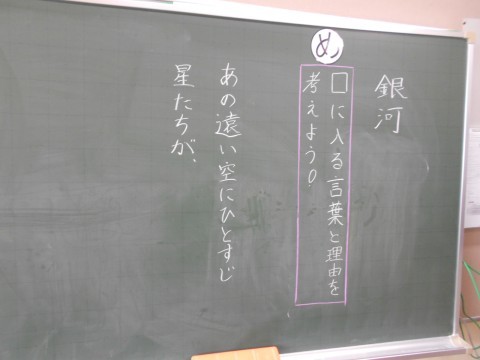 銀河
め
□に入る言葉と理由を
考えよう。
あの遠い空にひとすじ
星たちが、